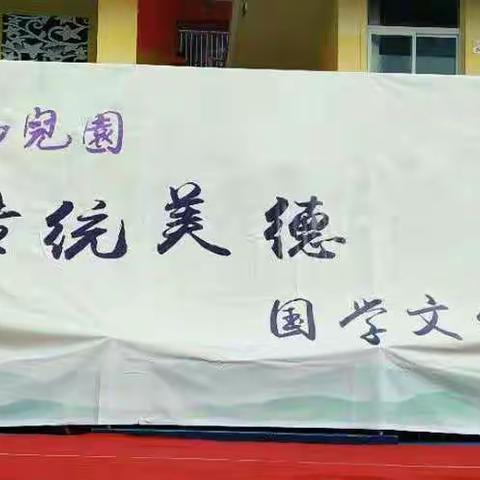 兒園
统美德
国学文